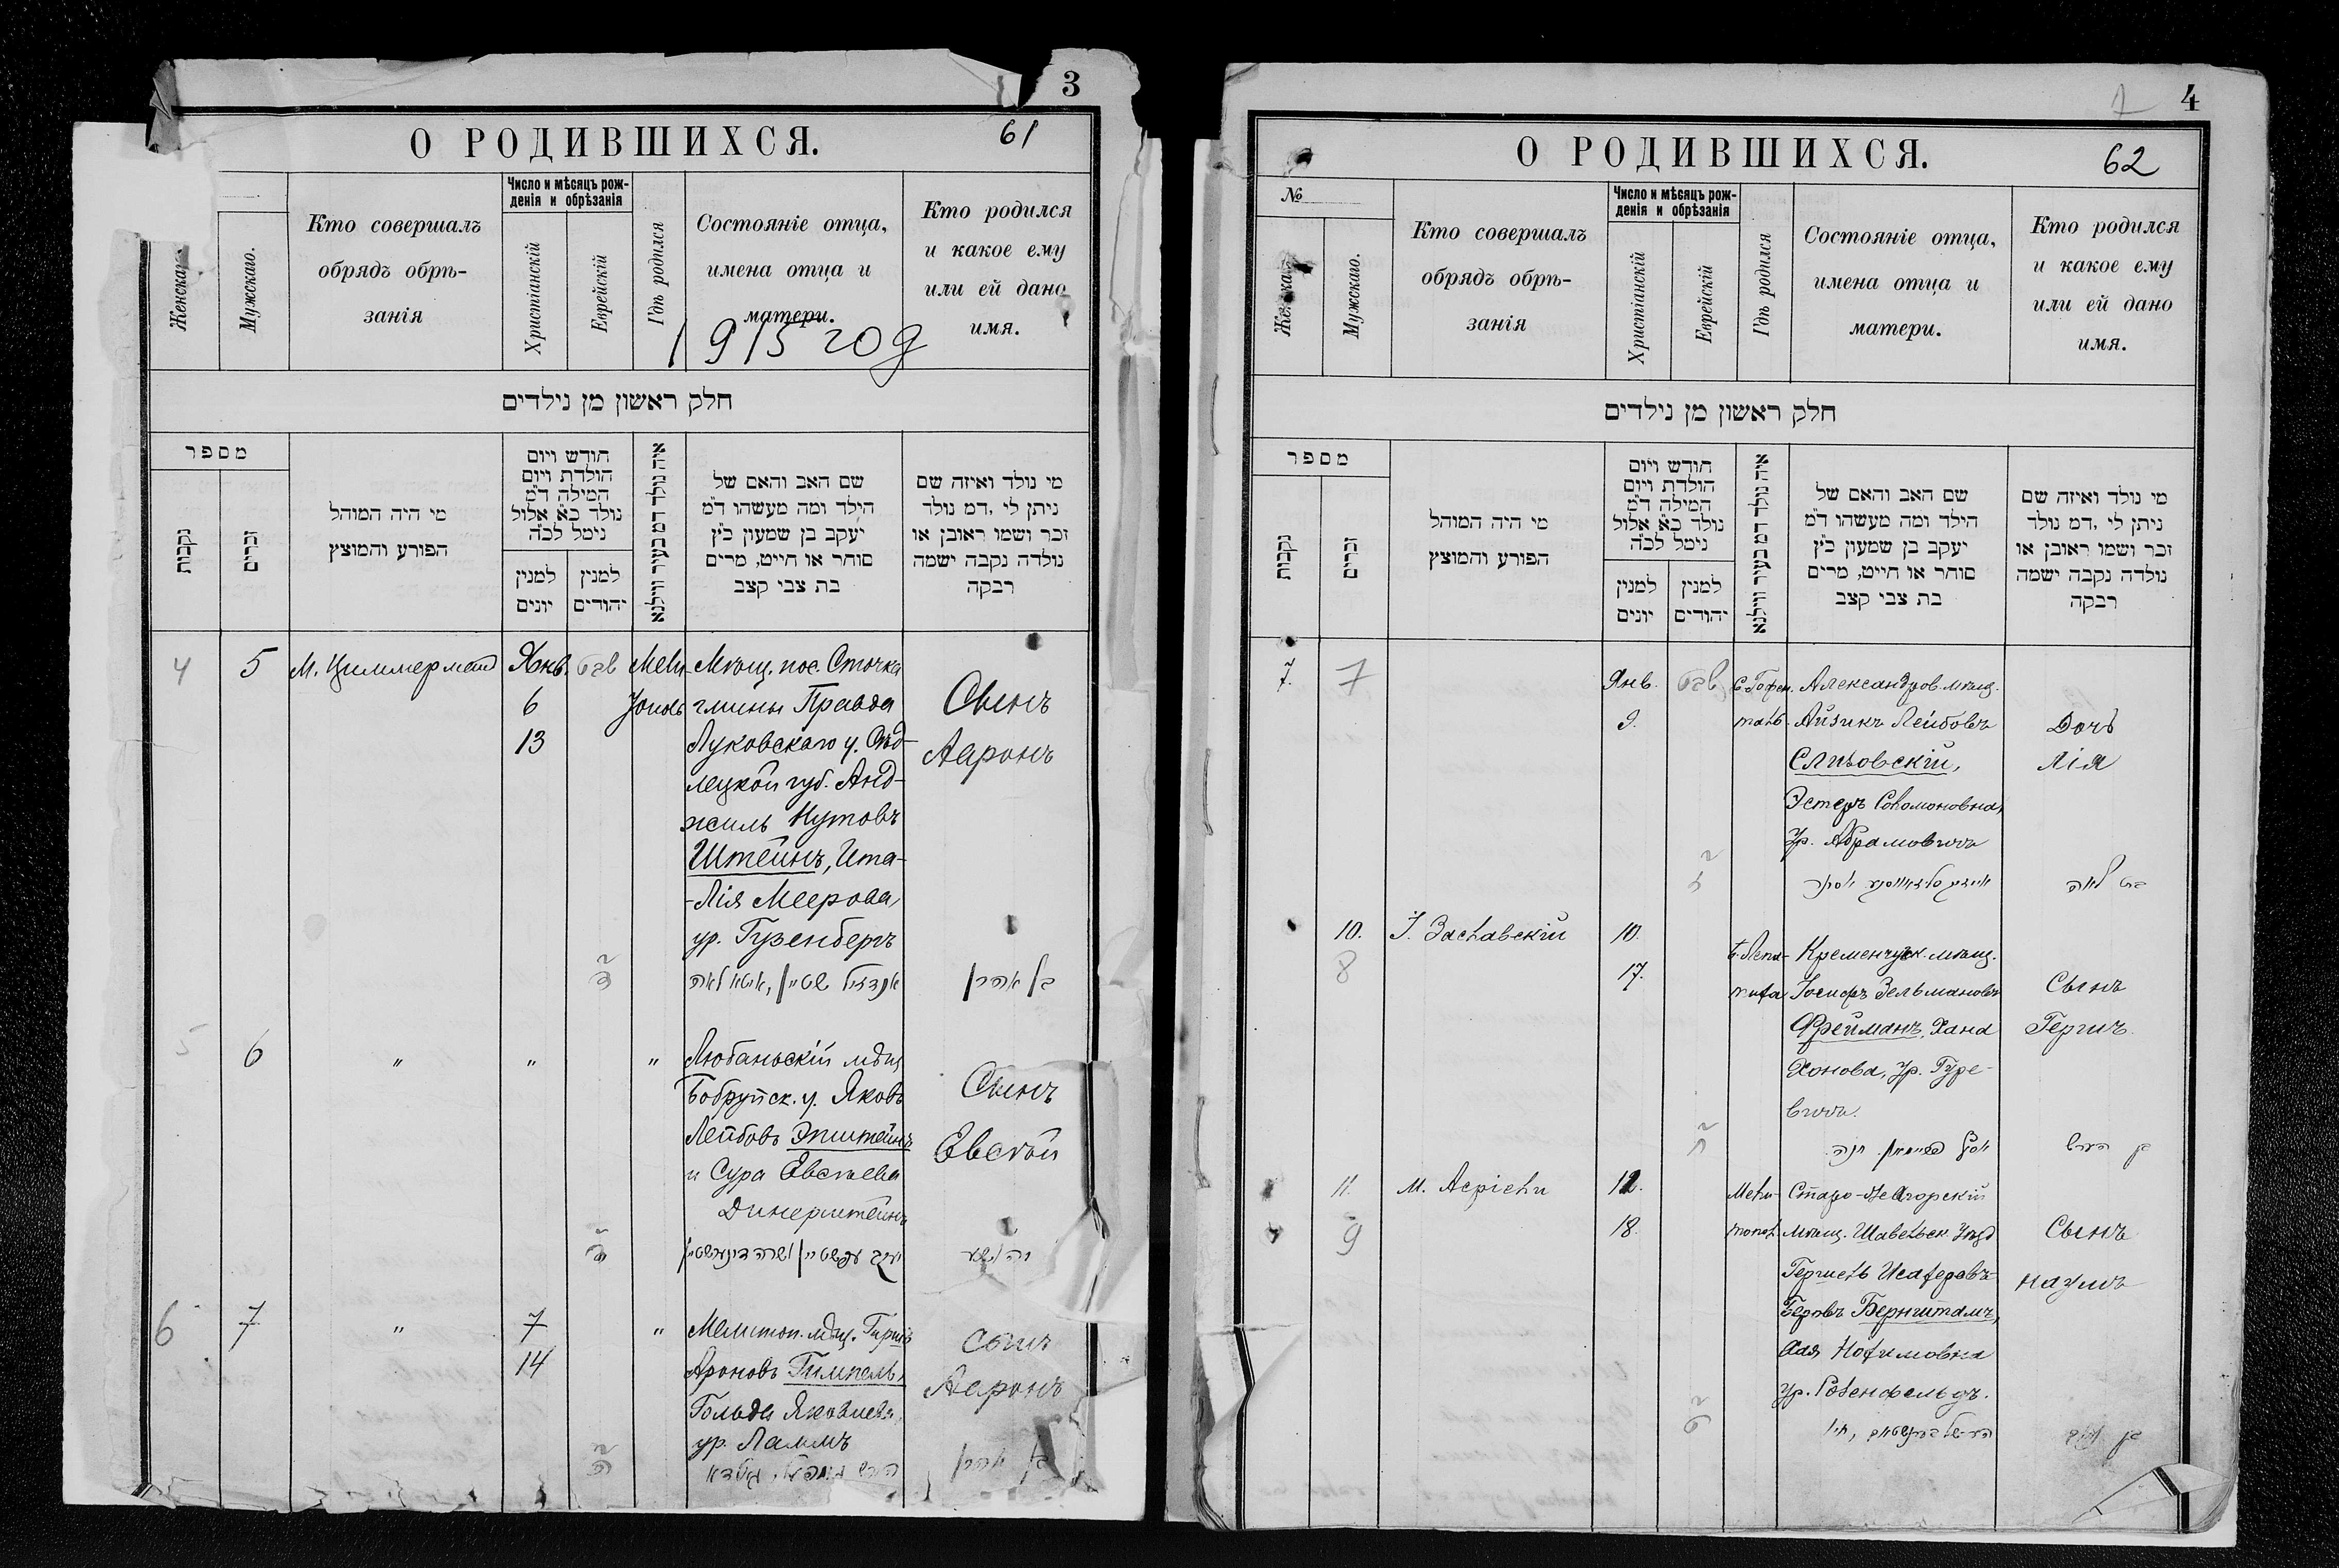 3
О РОДИВШИХСЯ.
61
Женскаго
Мужскаго.
Кто совершалъ
обрядъ обрѣ-
занія
Число и мѣсяцъ рож-
денія и обрѣзанія
Христіанскій
Еврейскій
Гдѣ родился
Состояніе отца,
имена отца и
матери.
Кто родился
и какое ему
или ей дано
имя.
1915 год
חלק ראשון מן נילדים
מספר
נקבות
זכרים
מי היה המוהל
הפורע והמוצץ
חודש ויום
הולדת ויום
המילה ד"מ
נולד כ"א אלול
נימל לכ"ה
למנין
יונים
למנין
יהודים
איה נולד דמ בעיר ווילנא
שם האב והאם של
הילד ומה מעשהו ד"מ
יעקב בן שמעון כ"ץ
סוחר או חייט, מרים
בת צבי קצב
מי נולד ואיזה שם
ניתן לי, דמ נולד
זכר ושמו ראובן או
נולדה נקבה ישמה
רבקה
4
5
М. Циммерман
Янв.
טבת
6
13
Мѣщ. пос. Сточка
гмины Правда
Луковскаго у. Сѣд-
лецкой губ. Анд-
жиль Нутовъ
Штейнъ, Ита-
-Лія Меерова,
ур. Гузенбергъ
Сынъ
Ааронъ
שטיין, איטא לאה
בן אהרן
5
6
"
"
"
Любаньскій мѣщ
Бобруйск. у. Яковъ
Лейбовъ Эпштейнъ
и Сура Евсѣева
Динерштейнъ
Сынъ
Евсѣй
יעקב עפשטיין ושרה דינערשטיין
6
7
"
7
14
"
Мелитоп. мѣщ. Гиршъ
Ароновъ Гимпель,
Гольда Яковлева,
ур. Ламмъ
Сынъ
Ааронъ
הירש גימפעל, גאלדא
בן אהרן
4
7
О РОДИВШИХСЯ.
62
№
Женскаго
Мужскаго.
Кто совершалъ
обрядъ обрѣ-
занія
Число и мѣсяцъ рож-
денія и обрѣзанія
Христіанскій
Еврейскій
Гдѣ родился
Состояніе отца,
имена отца и
матери.
Кто родился
и какое ему
или ей дано
имя.
חלק ראשון מן נילדים
מספר
נקבות
זכרים
מי היה המוהל
הפורע והמוצץ
חודש ויום
הולדת ויום
המילה ד"מ
נולד כ"א אלול
נימל לכ"ה
למנין
יונים
למנין
יהודים
איה נולד דמ בעיר ווילנא
שם האב והאם של
הילד ומה מעשהו ד"מ
יעקב בן שמעון כ"ץ
סוחר או חייט, מרים
בת צבי קצב
מי נולד ואיזה שם
ניתן לי, דמ נולד
זכר ושמו ראובן או
נולדה נקבה ישמה
רבקה
7.
7
Янв.
טבת
9.
Александров. мѣщ.
Айзикъ Лейбовъ
Эстеръ Соломоновна,
Ур. Абрамовичъ
Дочь
Лія
בת לאה
10.
8
І. Заславскій
10.
17.
Кременчуг. мѣщ.
Іосифъ Зельмановъ
Фрейманъ, Хана
Хонова, Ур. Гуре-
вичъ.
Сынъ
Гершъ
יוסף פריימאן, חנה
בן הערש
11.
9
М. Асріели
12.
18.
Старо-
мѣщ. Шавельск. Уѣзд
Беровъ Бернштамъ,
Хая
ур. Розенфельдъ.
Сынъ
Наумъ